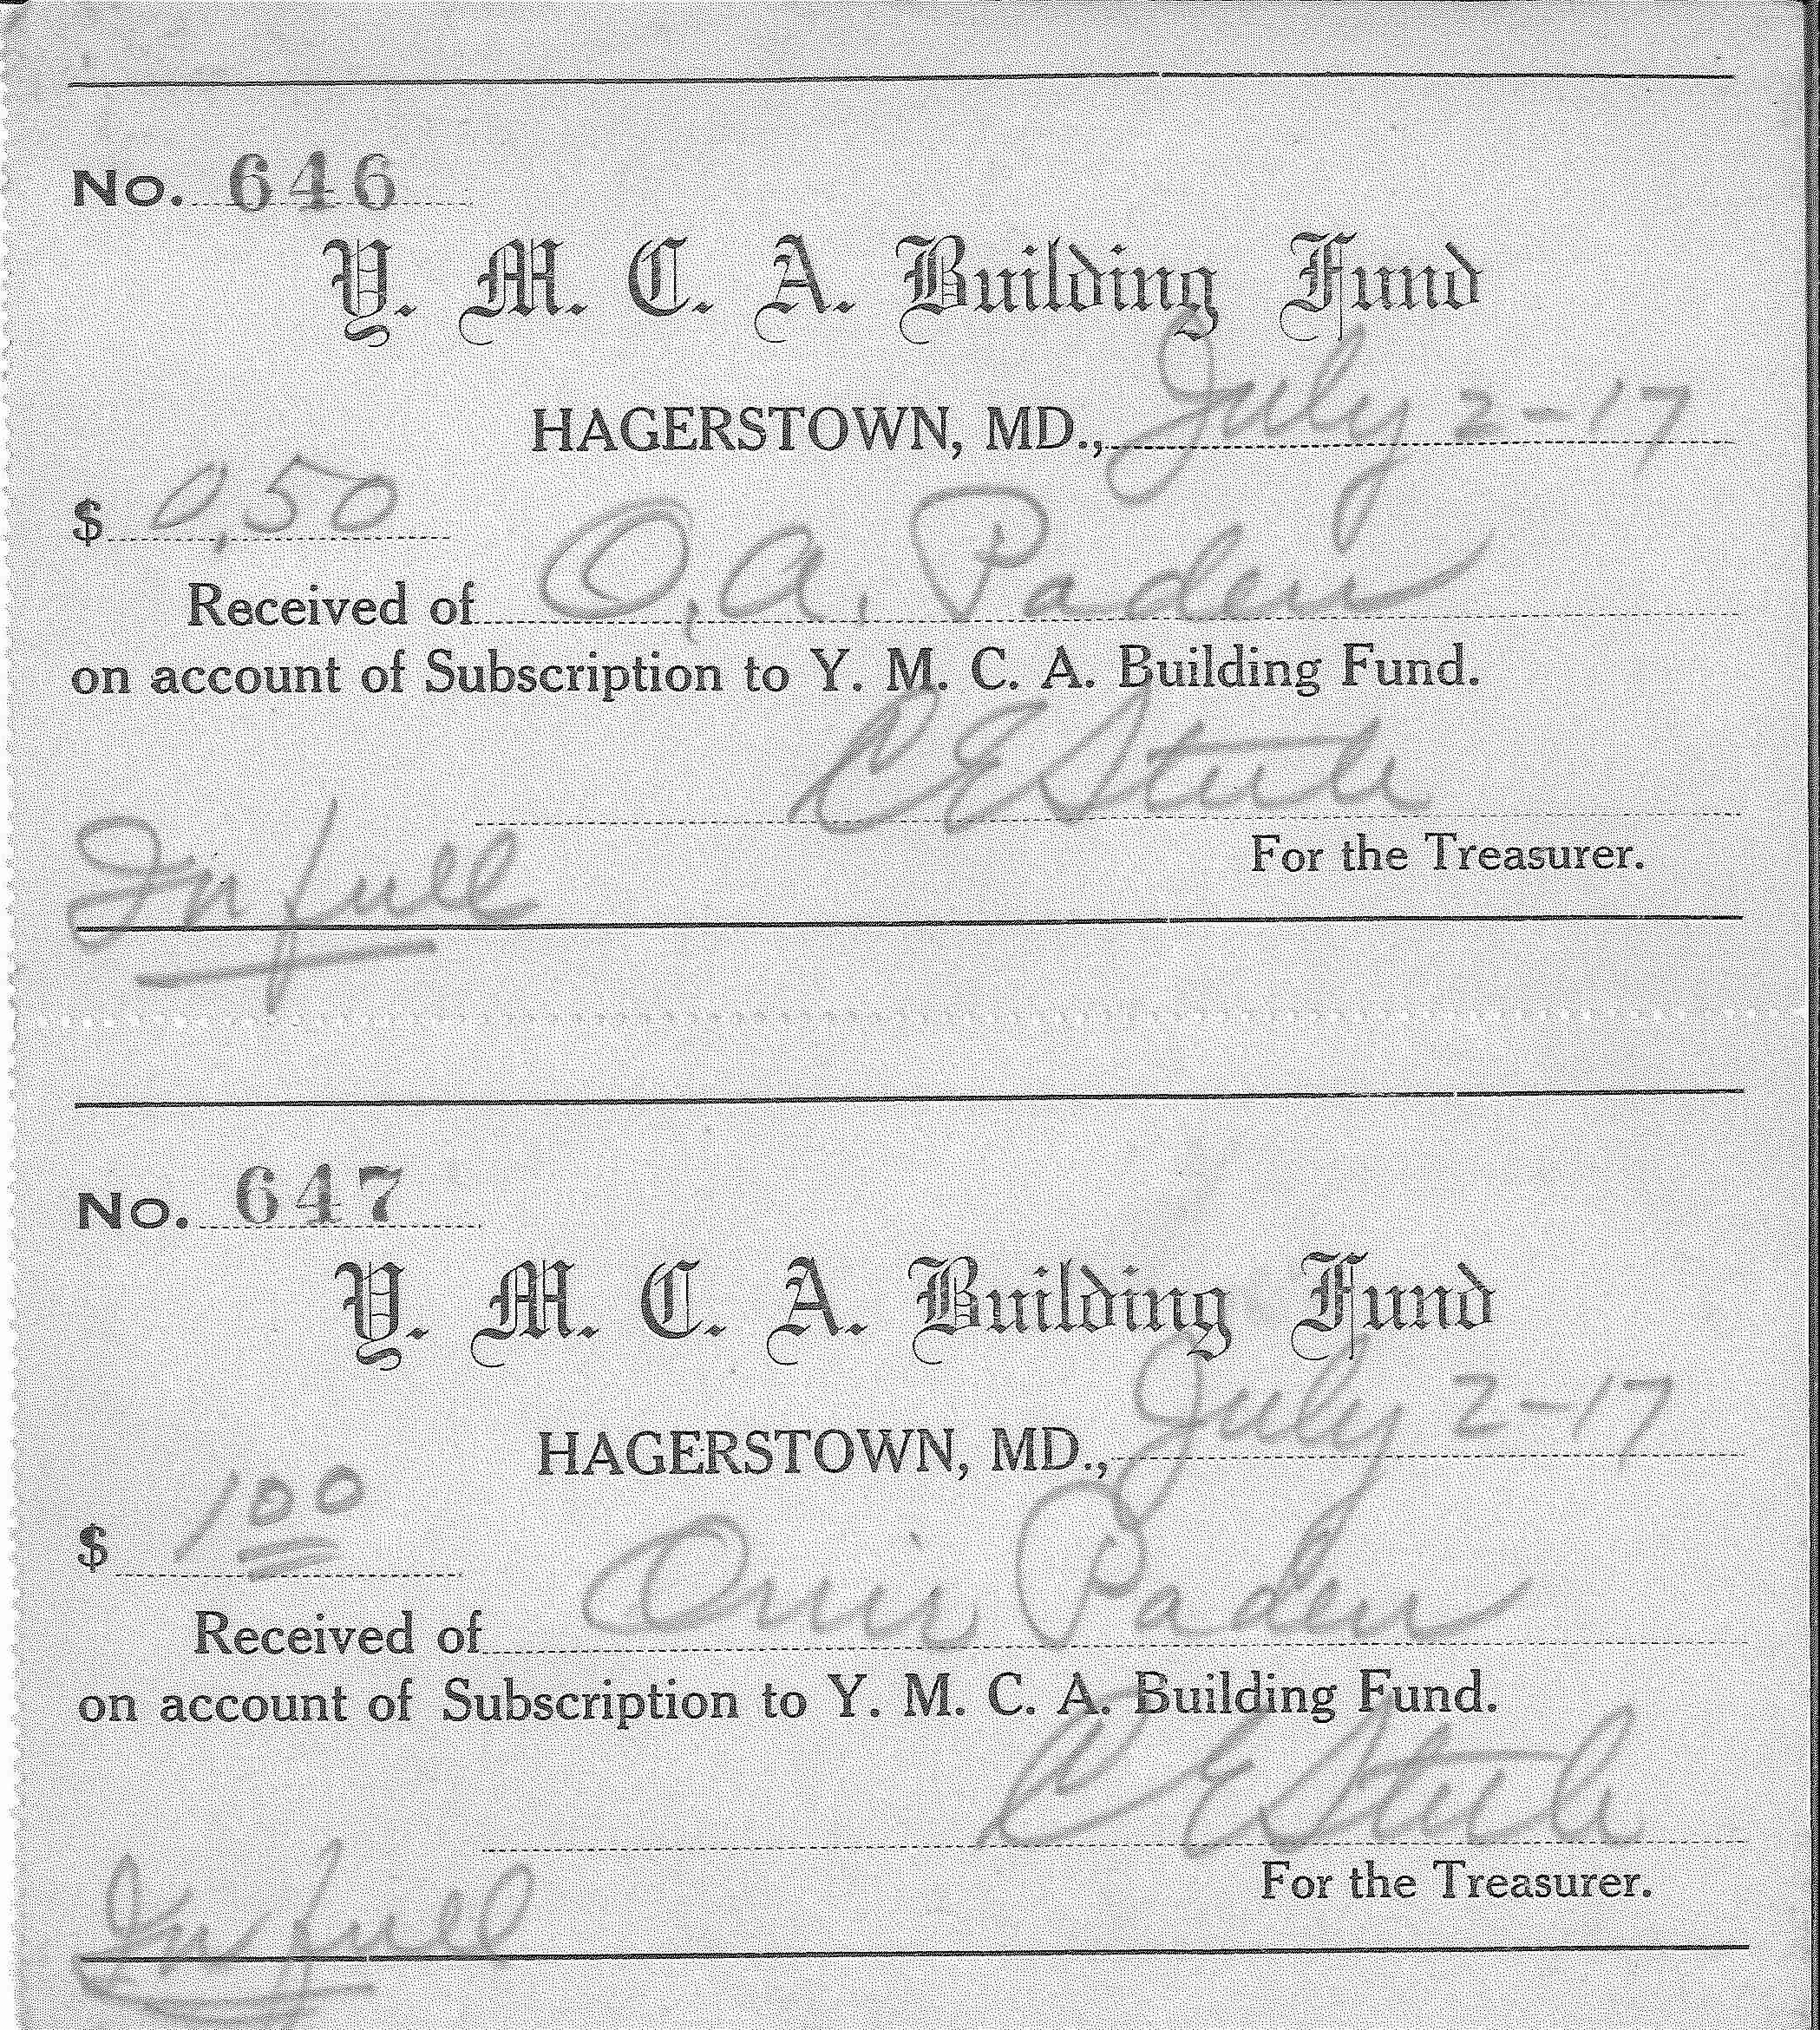 No. 646
Y. M. C. A. Building Fund
HAGERSTOWN, MD., July 2-17
$ 0,50
Received of O, A, Paden
on account of Subscription to Y. M. C. A. Building Fund.
C E Steele
For the Treasurer.
In full
No. 647
Y. M. C. A. Building Fund
HAGERSTOWN, MD., July 2-17
$ 1 00
Received of Paden
on account of Subscription to Y. M. C. A. Building Fund.
C E Steele
For the Treasurer.
In full